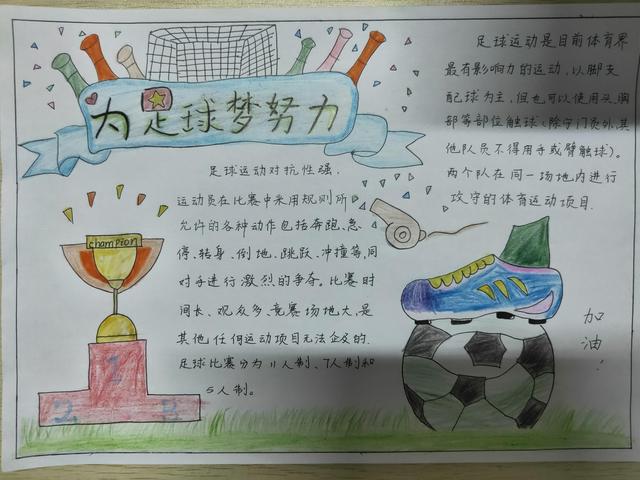 为足球梦努力
足球运动是目前体育界
最有影响力的运动，以脚支
配球为主，但也可以使用头、胸
部等部位触球（除守门员外，其
他队员不得用手或臂触球）。
两个队在同一场地内进行
攻守的体育运动项目.
足球运动对抗性强，
运动员在比赛中采用规则所
允许的各种动作包括奔跑、急
停、转身、倒地、跳跃、冲撞等，同
对手进行激烈的争夺。比赛时
间长、观众多、竞赛场地大，是
其他任何运动项目无法企及的.
足球比赛分为11人制、7人制和
5人制。
champion
1
2
3
加
油
！